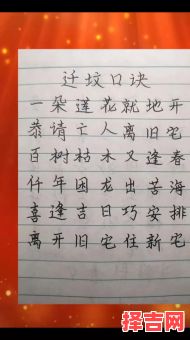 迁坟口诀
一朵莲花就地开
恭请亡人离旧宅
百树枯木又逢春
仟年困龙出苦海
喜逢吉日巧安排
离开旧宅住新宅
择吉网